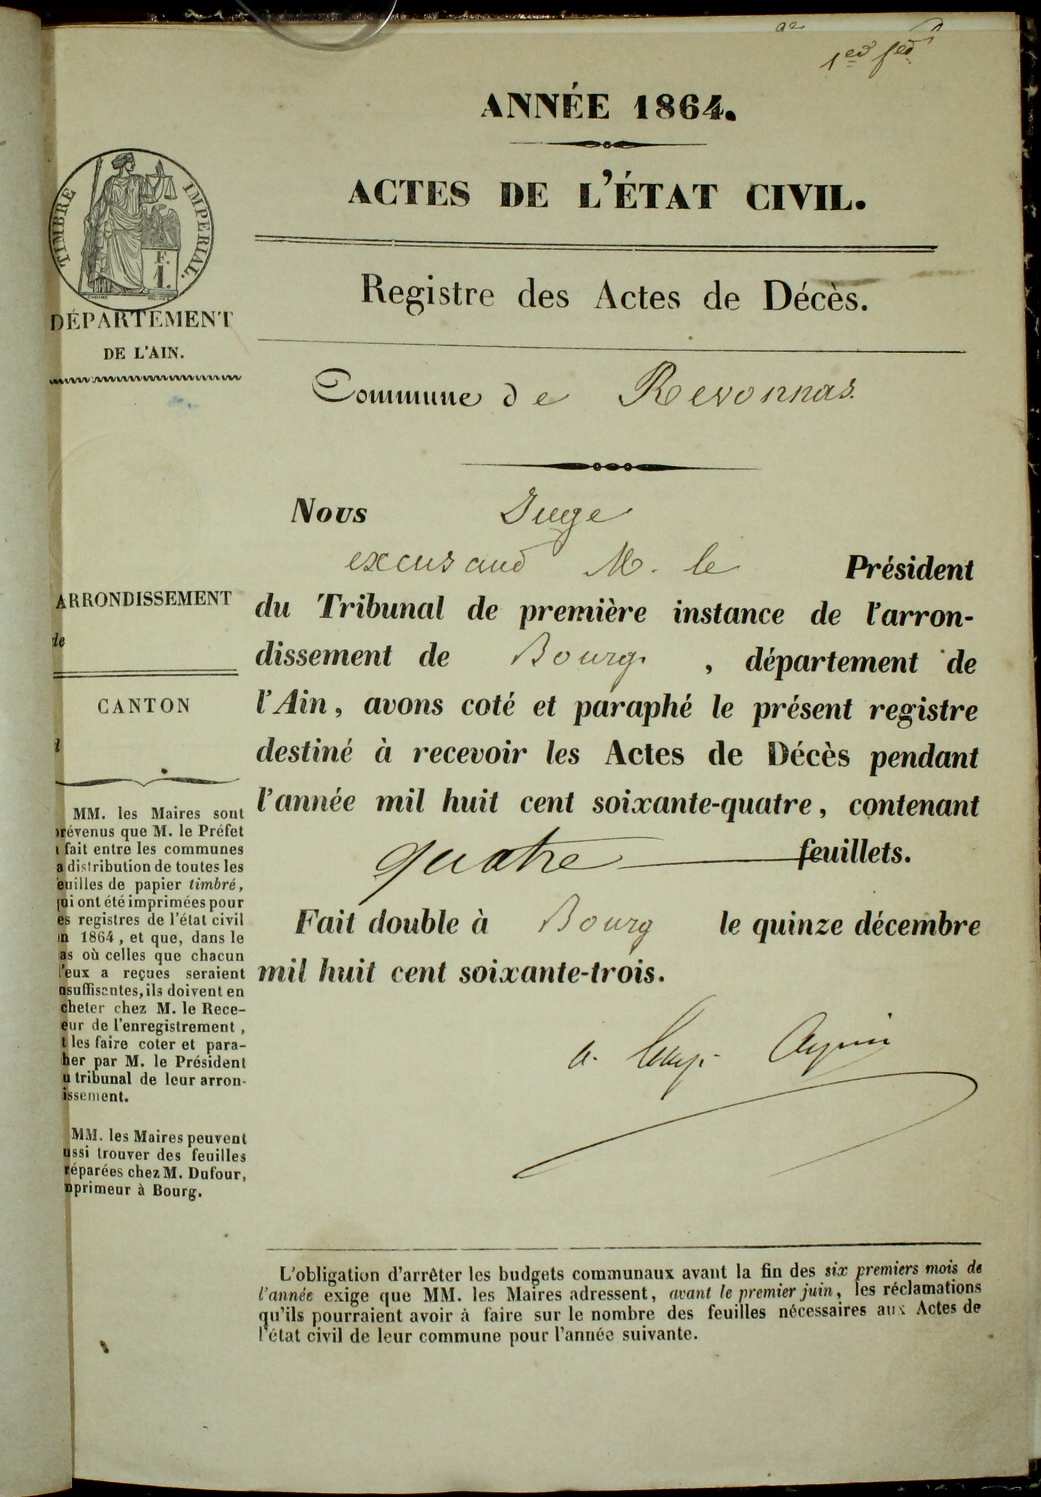 1er f
ANNÉE 1864.
ACTES DE L'ÉTAT CIVIL.
TIMBRE IMPERIAL.
F.
1.
DÉPARTEMENT
DE L'AIN.
Registre des Actes de Décès.
Commune de Revonnas.
Nous Juge
excusand M. le Président
du Tribunal de première instance de l'arron-
dissement de Bourg, département de
l'Ain, avons coté et paraphé le présent registre
destiné à recevoir les Actes de Décès pendant
l'année mil huit cent soixante-quatre, contenant
quatre feuillets.
Fait double à Bourg le quinze décembre
mil huit cent soixante-trois.
ARRONDISSEMENT
de
CANTON
MM. les Maires sont
révenus que M. le Préfet
fait entre les communes
a distribution de toutes les
euilles de papier timbré,
ui ont été imprimées pour
es registres de l'état civil
n 1864, et que, dans le
as où celles que chacun
'eux a reçues seraient
nsuffisantes, ils doivent en
cheter chez M. le Rece-
eur de l'enregistrement,
t les faire coter et para-
her par M. le Président
u tribunal de leur arron-
issement.
MM. les Maires peuvent
ussi trouver des feuilles
réparées chez M. Dufour,
mprimeur à Bourg.
L'obligation d'arrêter les budgets communaux avant la fin des six premiers mois de
l'année exige que MM. les Maires adressent, avant le premier juin, les réclamations
qu'ils pourraient avoir à faire sur le nombre des feuilles nécessaires aux Actes de
l'état civil de leur commune pour l'année suivante.